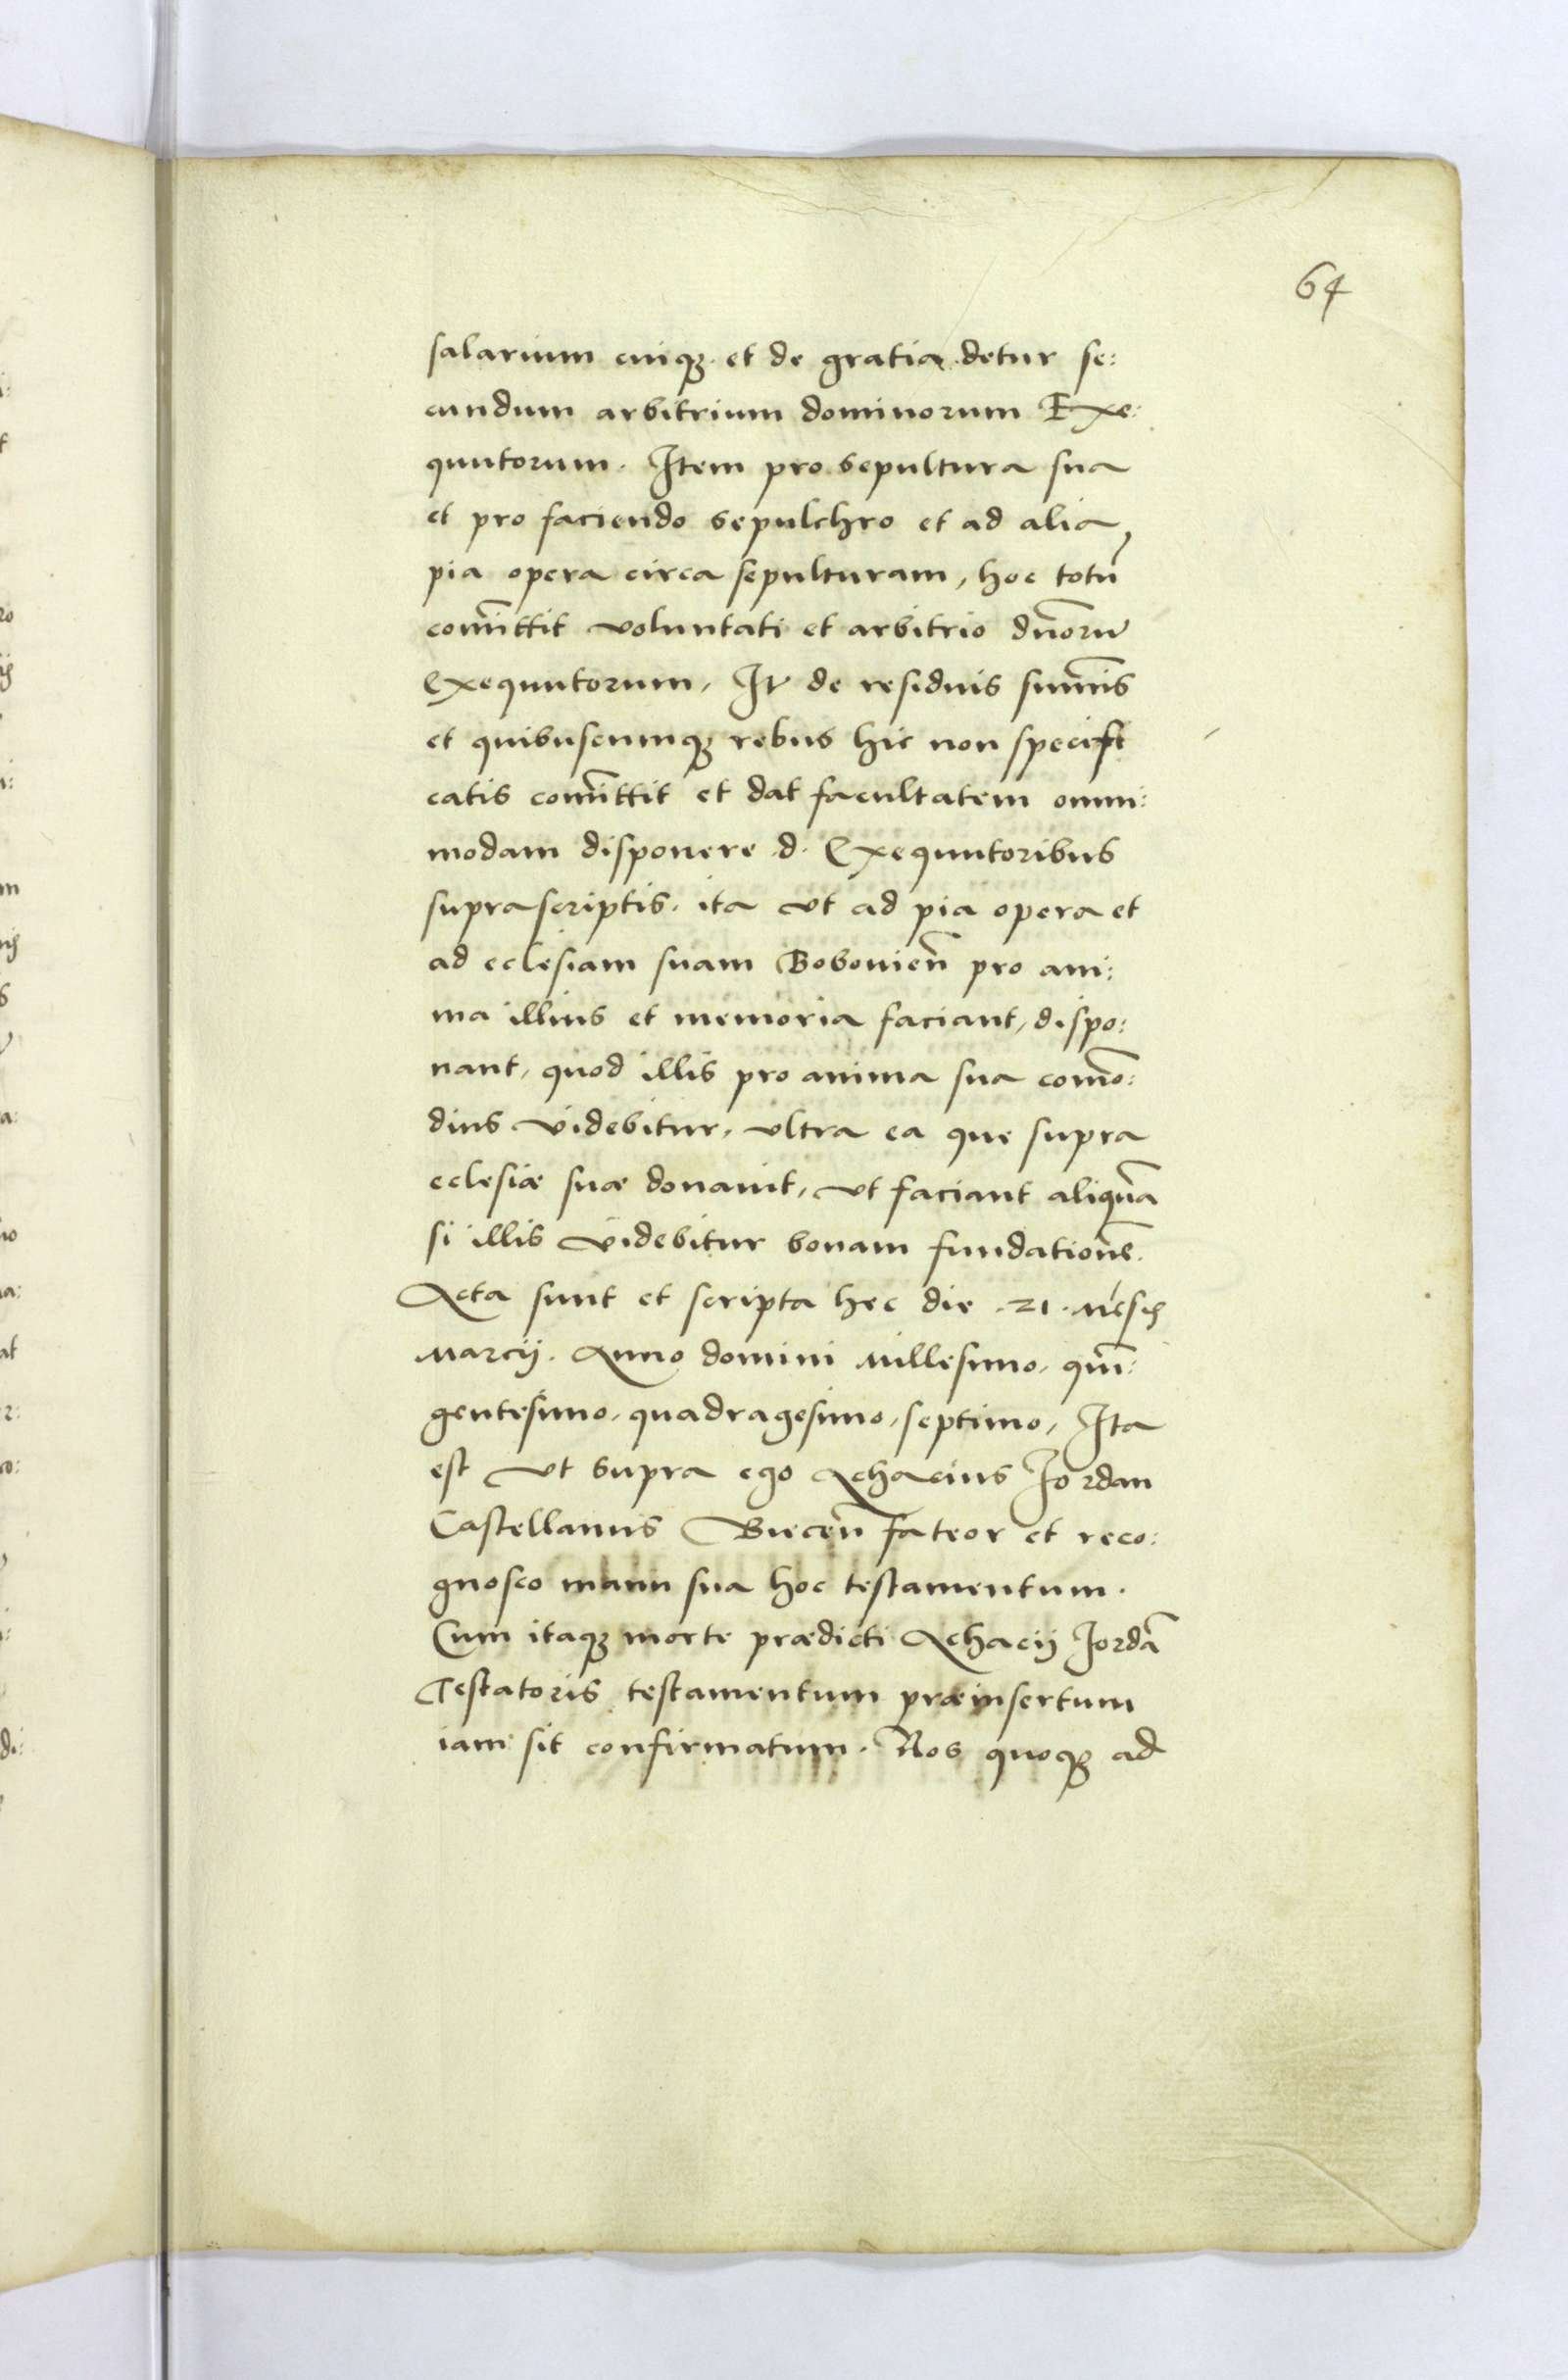 64
salarium cuiqꝫ et de gratia detur se:
cundum arbitrium dominorum Exe:
quutorum. Item pro sepultura sua
et pro faciendo sepulchro et ad alia
pia opera circa sepulturam, hoc totū
com̄ittit voluntati et arbitrio dn̄orū
Exequutorum, Itē de residuis sum̄is
et quibuscumqꝫ rebus hic non specifi
catis com̄ittit et dat facultatem omni:
modam disponere d. Exequutoribus
suprascriptis. ita vt ad pia opera et
ad eclesiam suam Bobouien̄ pro ani:
ma illius et memoria faciant, dispo:
nant, quod illis pro anima sua com̄o:
dius videbitur, vltra ea que supra
eclesiæ suæ donauit, vt faciant aliquā
si illis videbitur bonam fundationē.
Acta sunt et scripta hec die .21. Mēsis
Marcij. Anno domini Millesimo, quī:
gentesimo, quadragesimo, septimo, Ita
est vt supra ego Achacius Iordan
Castellanus Biecen̄ fateor et reco:
gnosco manu sua hoc testamentum.
Cum itaqꝫ morte prædicti Achacij Iordā
Testatoris testamentum præinsertum
iam sit confirmatum. Nos quoqꝫ ad